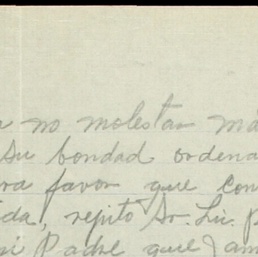 no molestar
Su bondad ordena
favor que con
repito Sr. Lic.
Padre que jam